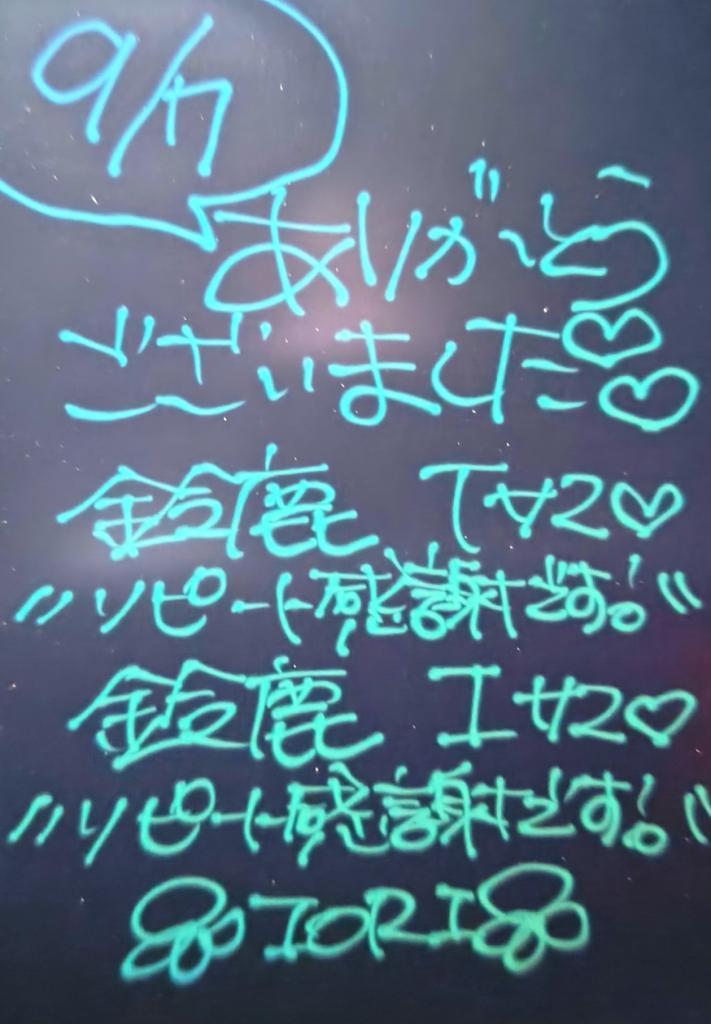 9/7
ありがとう
ございました♡♡
鈴鹿 Tサン♡
〃リピート感謝です!〃
鈴鹿 Iサン♡
〃リピート感謝です!〃
IORI